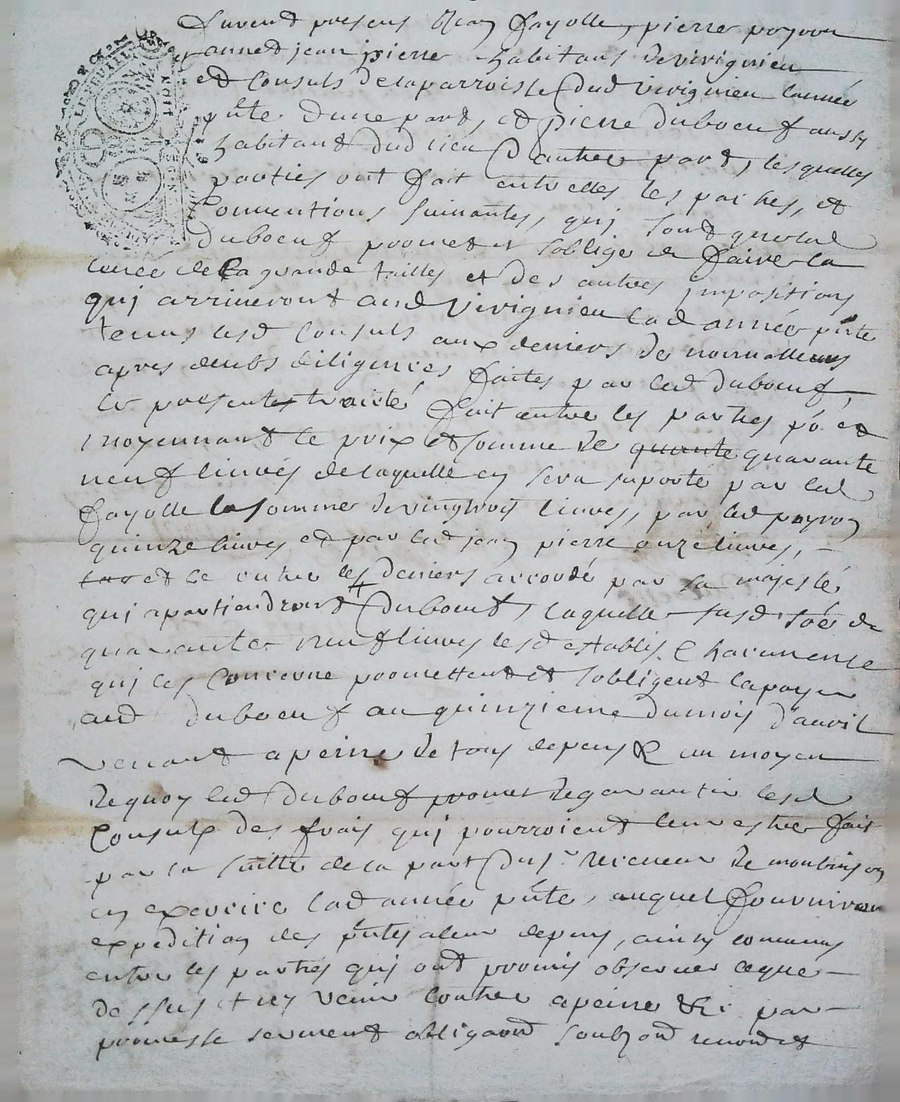 furent presens Jean fayolle, pierre peyron
annet jean pierre habitans de vivignieu
et Consuls de la parroisse dud vivignieu lannée
pnte dune part, et pierre duboeuf aussy
habitant dud lieu d'autre part, lesquelles
parties ont fait entrelles les paches, et
Conventions suivantes, qui sont que led
duboeuf promet et soblige de faire la
levée de la grande tailles et des autres Impositions
qui arriveront aud vivignieu lad année pnte
tenus lesd Consuls aux deniers de nonvalleurs
apres deubs diligences faites par led duboeuf,
le present traicté fait entre les parties po. et
moyennant le prix et somme de quarante
neuf livres de laquelle en sera suporté par led
fayolle la somme de vingtrois livres, par led peyron
quinze livres et par led jean pierre onze livres,
et ce outre les deniers accordé par sa majesté
qui apartiendront duboeuf, laquelle susd soe de
quarante neuf livres lesd establis Chacun en ce
qui les concerne promettent et sobligent la payer
aud duboeuf au quinzieme du mois d'avril
venant a peine de tous depens & au moyen
de quoy led duboeuf promet de garantir lesd
Consulx des frais qui pourroient leur estre fait
par la suitte de la part du sr receveur de
en exercice lad année pnte, auquel fourniron
expedition des pntes a leur depens, ainsy convenus
entre les parties qui ont promis observer ce que
dessus et ny venir contre a peine &c par
promesse serment obligaon soubzon renon et